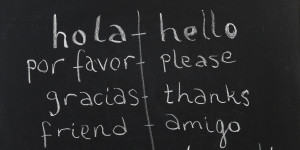 hola - hello
por favor - please
gracias - thanks
friend - amigo